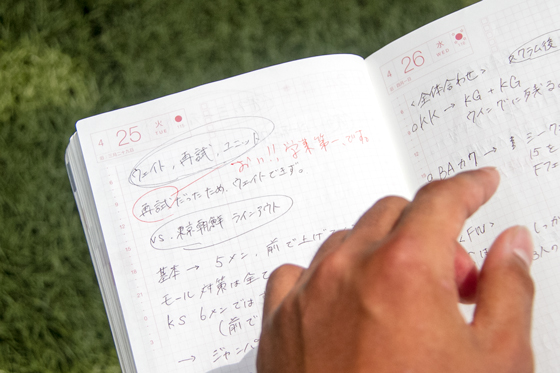 4 25 火
ウェイト、再試、ユニット
おい!!学業第一です。
再試だったため、ウェイトできず。
vs. 東京朝鮮 ラインアウト
基本 → 5メン、前で上げ
モール対策は全て
KS 6メンでは
(前で
→ ジャンパ
4 26 水
スクラム後
<全体合わせ>
○KK → KG + KG
ウイングに残る。
○BAカク →
15を
<FW>